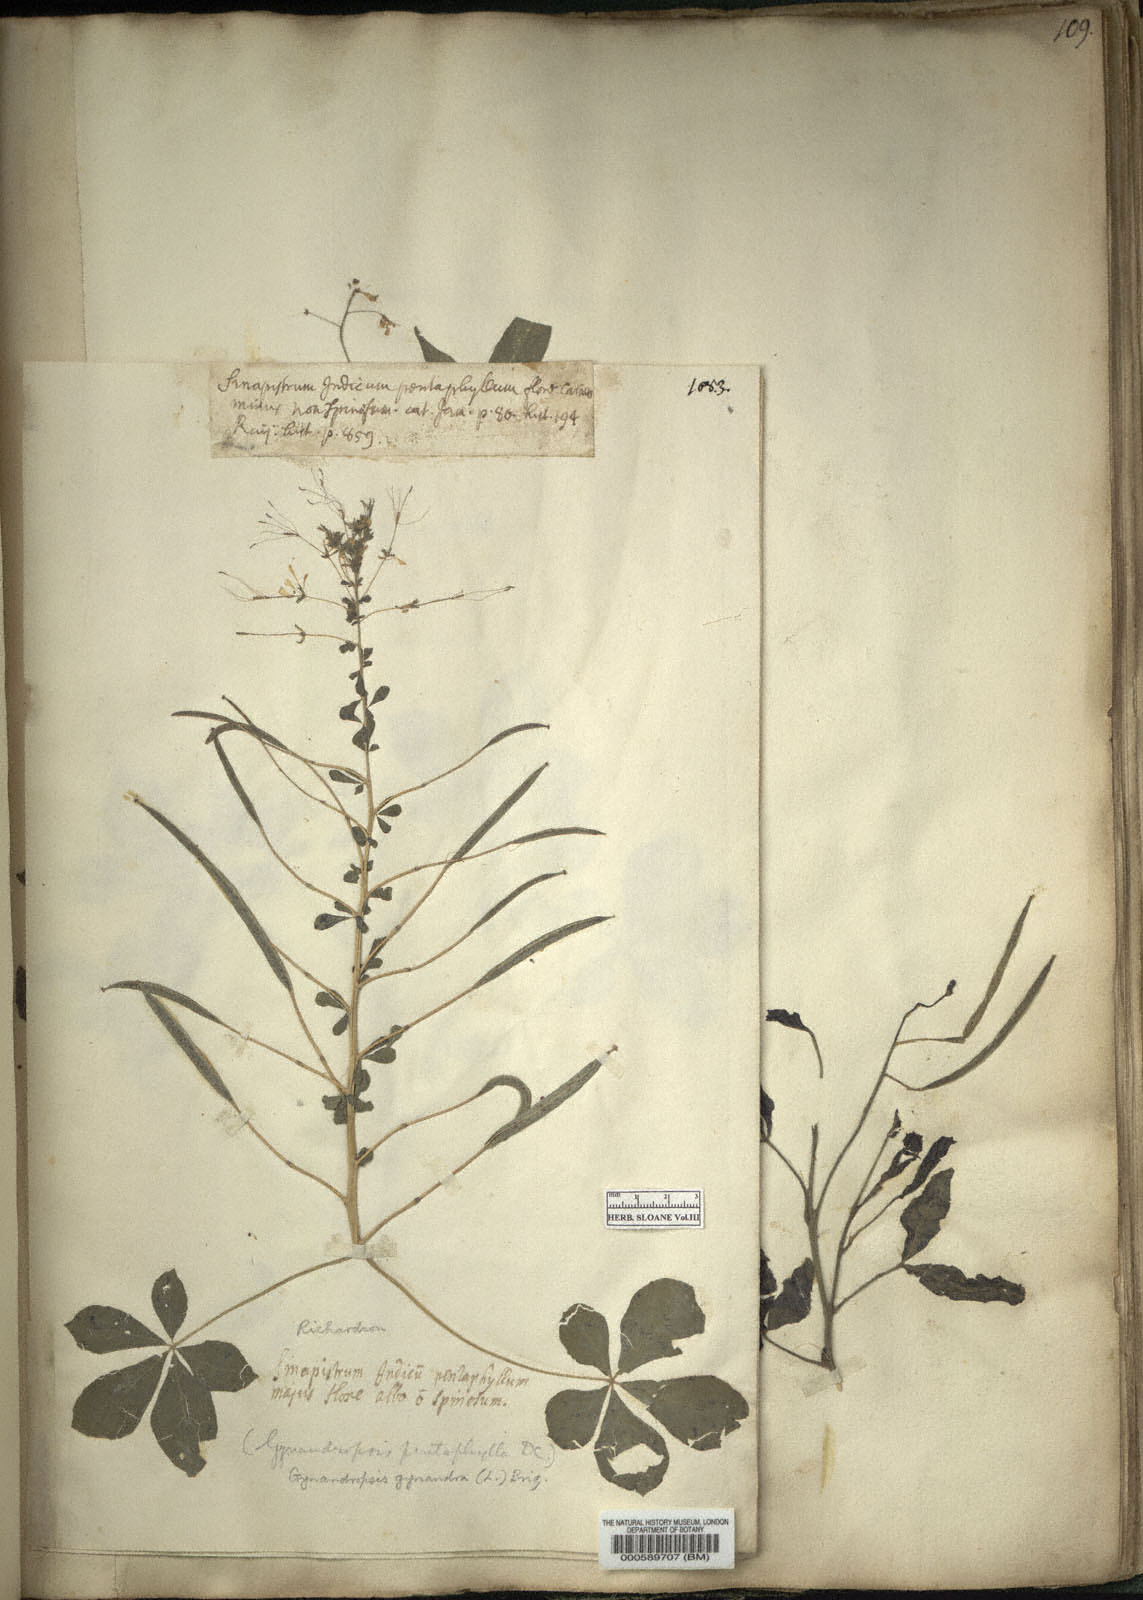 109.
Sinapistrum Indicum pentaphyllum flore carneo
minus non spinosum. cat. Jam. p. 80. hist. 194
Raij. hist. p. 859.
1053.
mm 1 2 3
HERB. SLOANE Vol.III
Richardson
Sinapistrum Indicū pentaphyllum
majus flore albo ō spinosum.
(Gynandropsis pentaphylla DC.)
Gynandropsis gynandra (L.) Briq.
THE NATURAL HISTORY MUSEUM, LONDON
DEPARTMENT OF BOTANY
000589707 (BM)